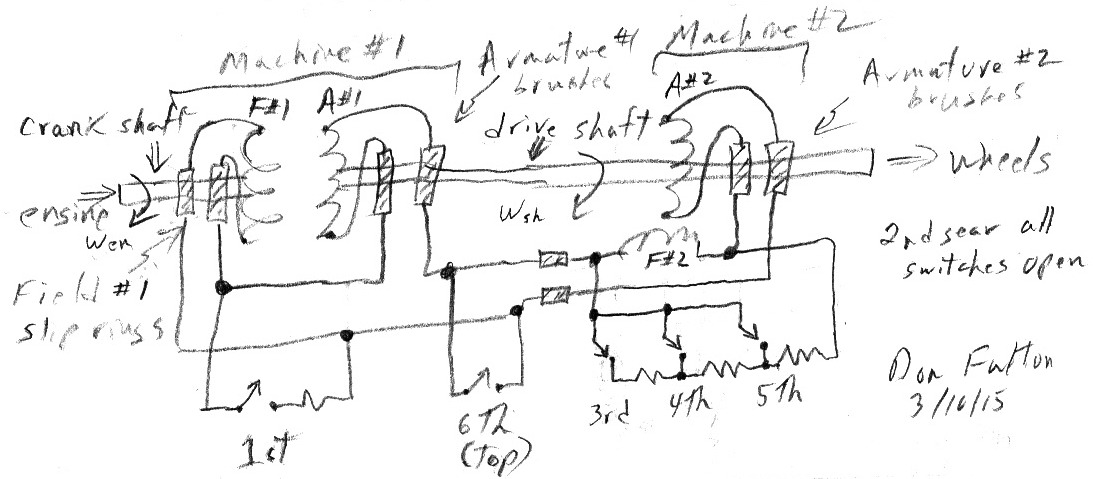 Machine #1
Armature #1
brushes
Machine #2
F#1
A#1
A#2
Armature #2
brushes
crank shaft
drive shaft
engine
Wen
Wsh
Wheels
F#2
2nd gear all
switches open
Field #1
slip rings
1st
6th
(top)
3rd
4th
5th
Don Fulton
3/16/15